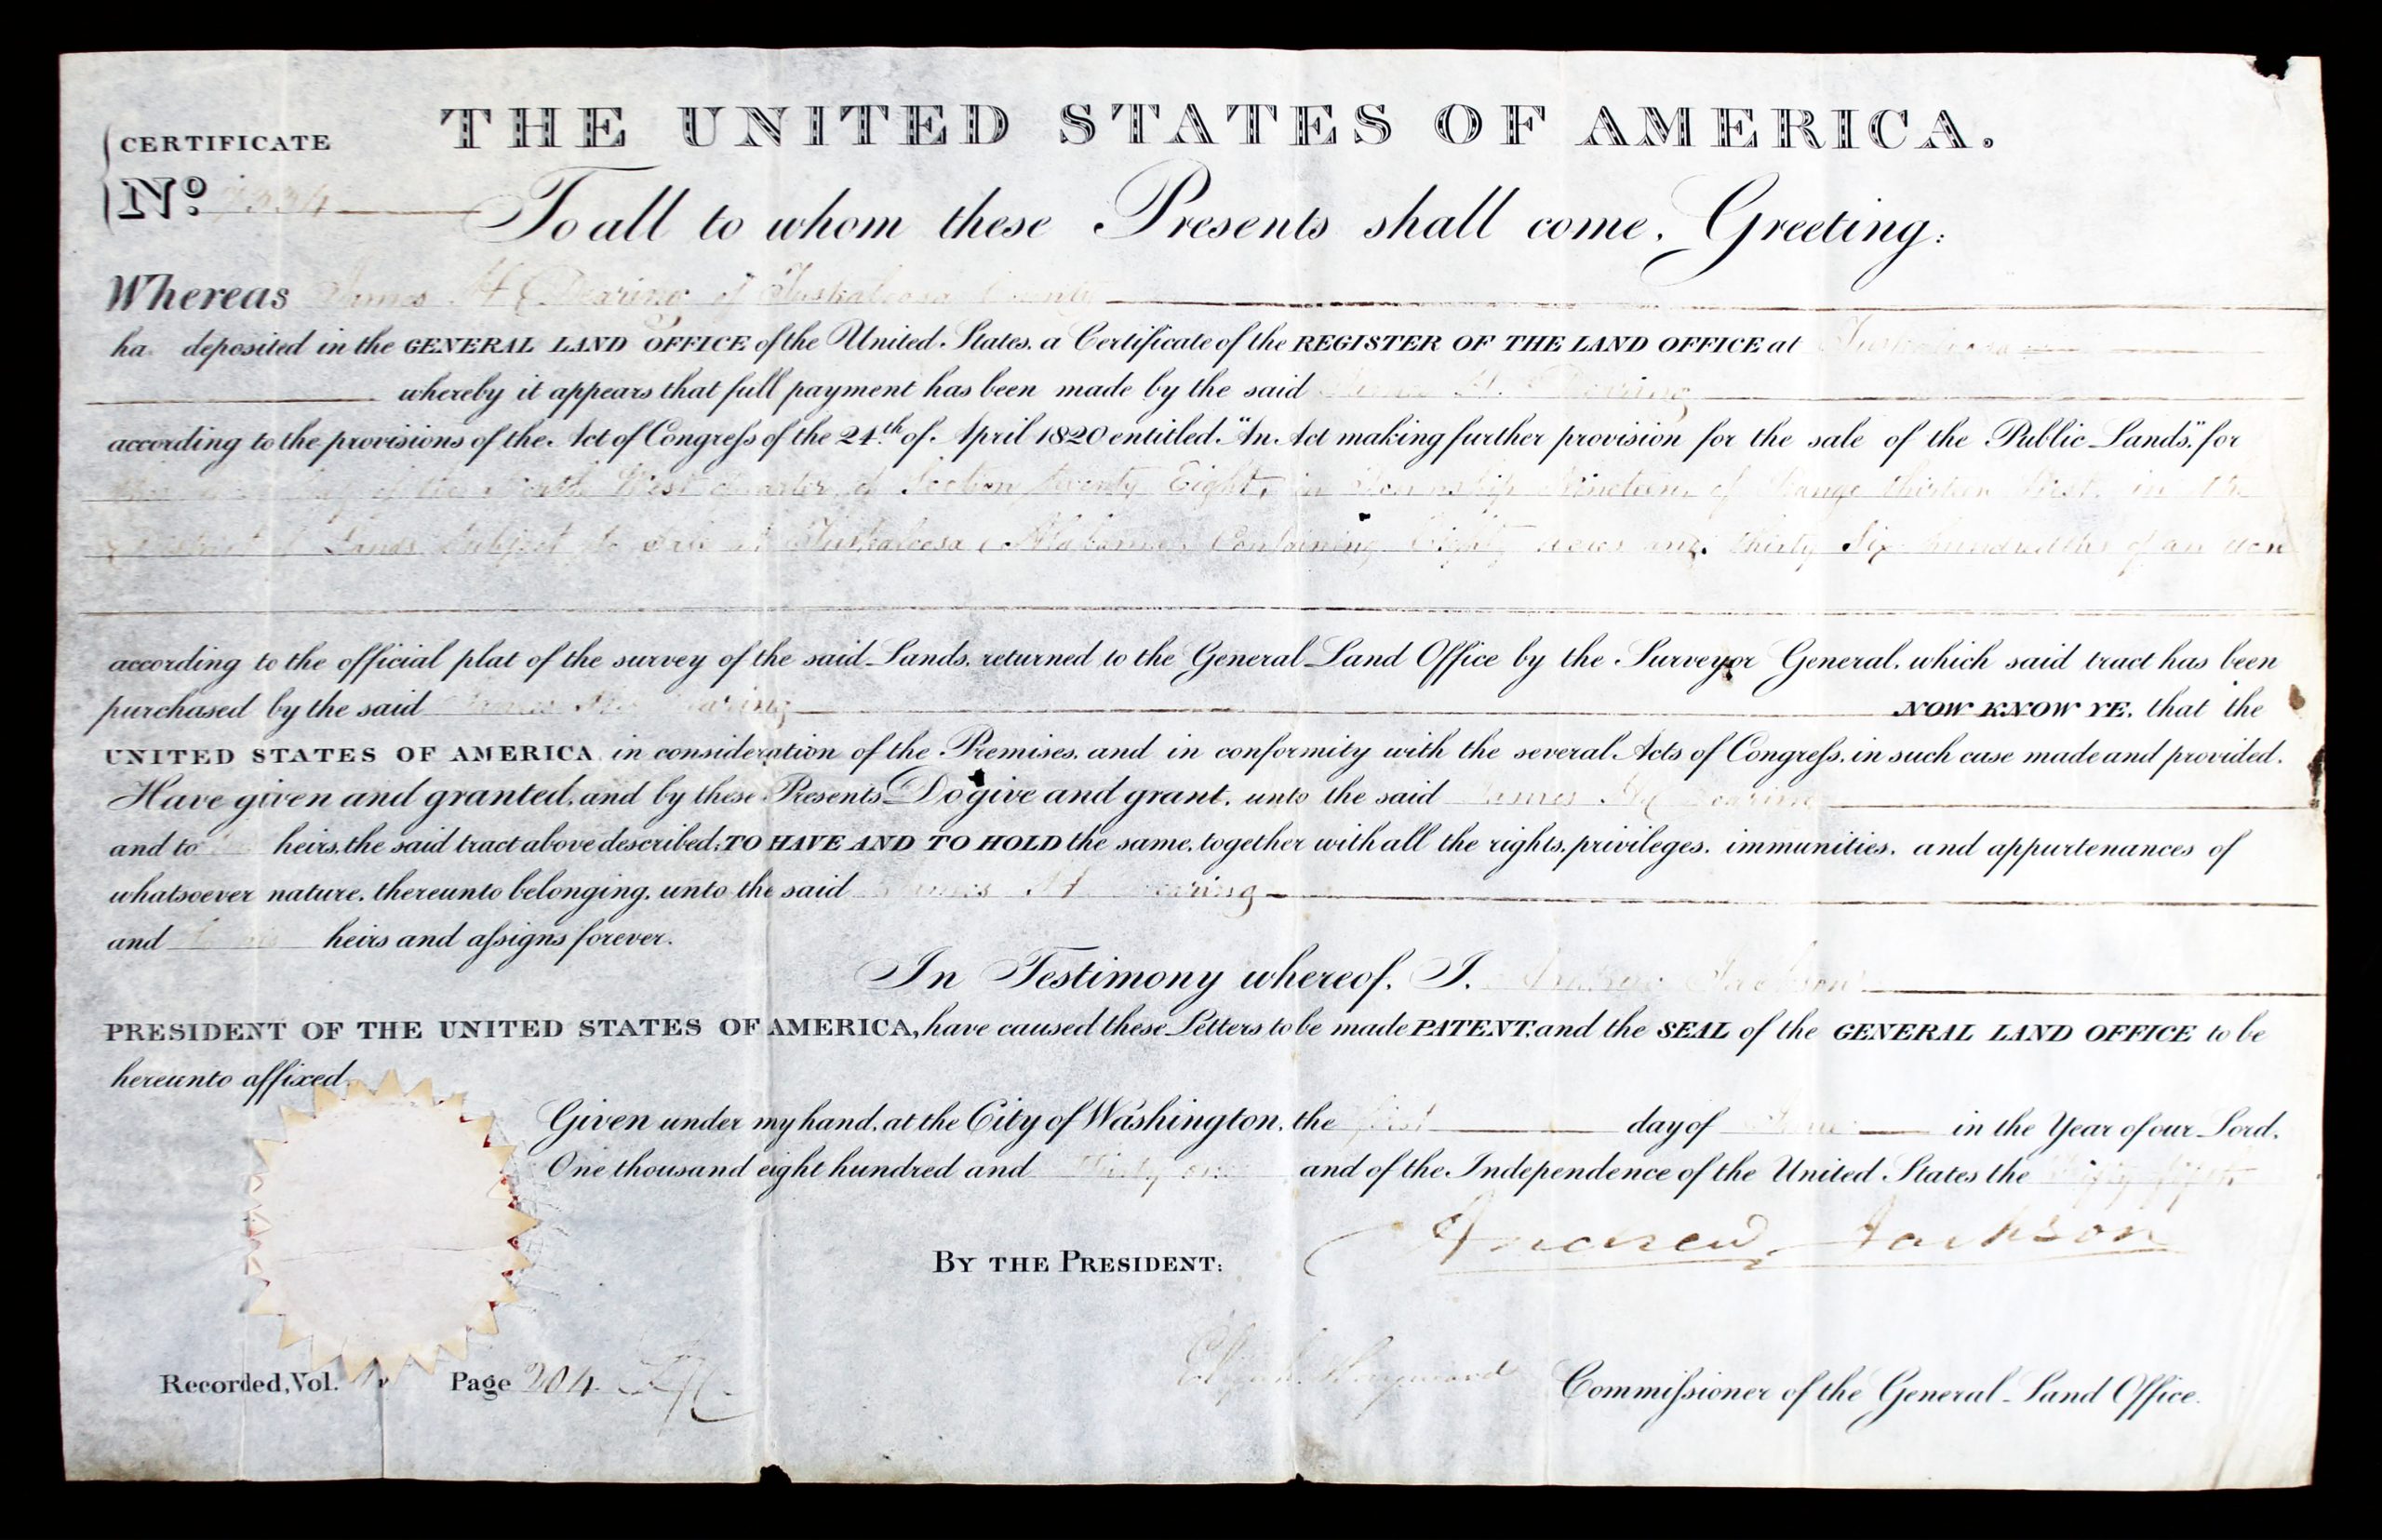 THE UNITED STATES OF AMERICA.
CERTIFICATE
Nº
To all to whom these Presents shall come, Greeting:
Whereas James H Dearing of Tuskaloosa County
ha deposited in the GENERAL LAND OFFICE of the United States, a Certificate of the REGISTER OF THE LAND OFFICE at Tuskaloosa
whereby it appears that full payment has been made by the said James H. Dearing
according to the provisions of the Act of Congreſs of the 24.th of April 1820 entitled "An Act making further provision for the sale of the Public Lands," for
the of the North West quarter of Section twenty Eight, in Township Nineteen, of Range thirteen West, in the
District of Lands Subject to Sale at Tuskaloosa, Alabama, Containing Eighty acres and thirty Six hundredths of an acre
according to the official plat of the survey of the said Lands, returned to the General Land Office by the Surveyor General, which said tract has been
purchased by the said James Dearing NOW KNOW YE, that the
UNITED STATES OF AMERICA, in consideration of the Premises, and in conformity with the several Acts of Congreſs, in such case made and provided,
Have given and granted, and by these Presents Do give and grant, unto the said James Dearing
and to heirs, the said tract above described; TO HAVE AND TO HOLD the same, together with all the rights, privileges, immunities, and appurtenances of
whatsoever nature, thereunto belonging, unto the said James H Dearing
and his heirs and aſsigns forever.
In Testimony whereof, I, Andrew Jackson
PRESIDENT OF THE UNITED STATES OF AMERICA, have caused these Letters to be made PATENT, and the SEAL of the GENERAL LAND OFFICE to be
hereunto affixed.
Given under my hand, at the City of Washington, the first day of June in the Year of our Lord,
One thousand eight hundred and thirty one and of the Independence of the United States the fifty fifth
Andrew Jackson
BY THE PRESIDENT:
Elijah Hayward Commiſsioner of the General Land Office.
Recorded, Vol. Page 204